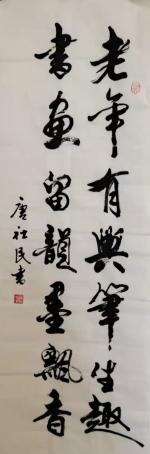 老年有興筆生趣
書画留韻墨飄香
唐社民书